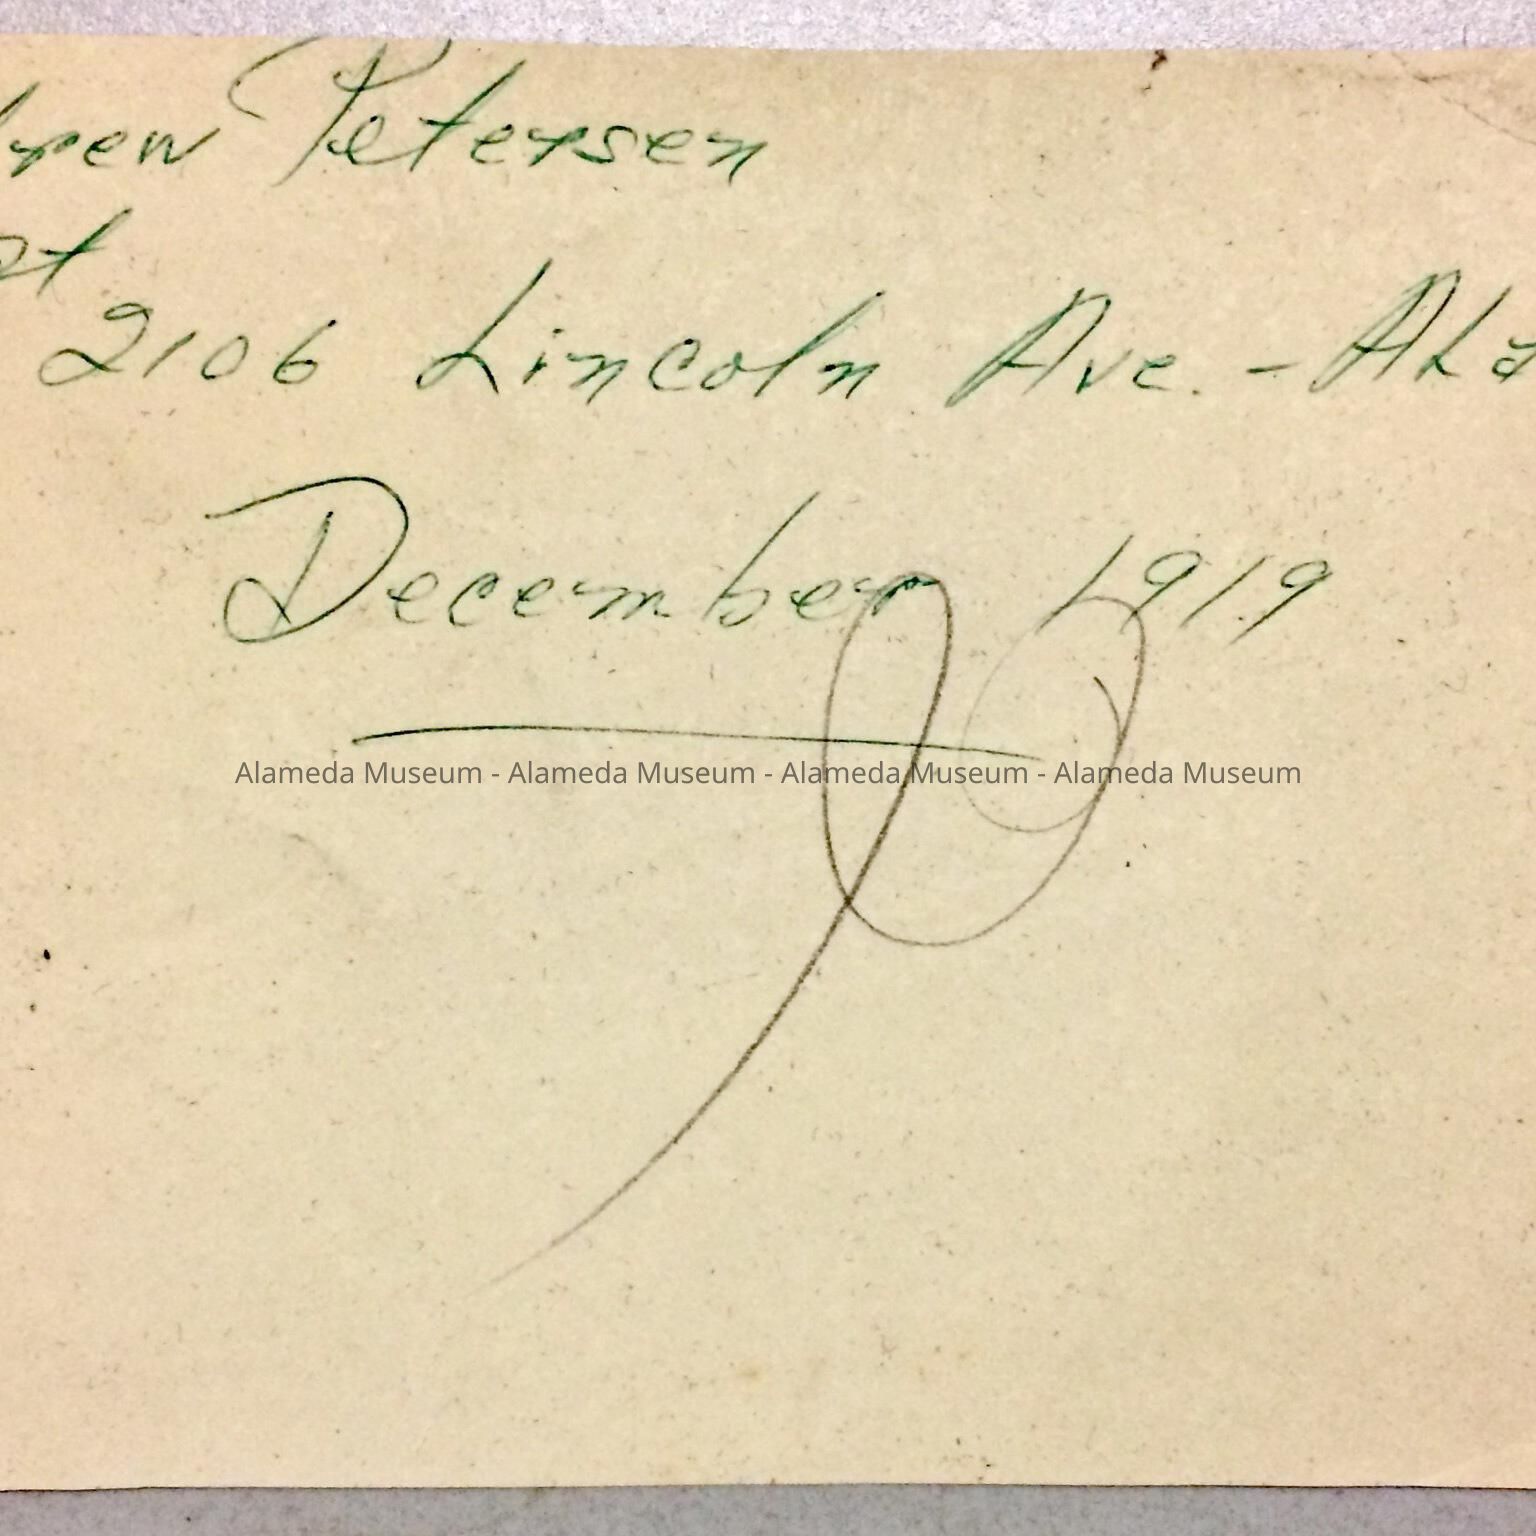 drew Petersen
at
2106 Lincoln Ave. - Ala
December 1919
Alameda Museum - Alameda Museum - Alameda Museum - Alameda Museum